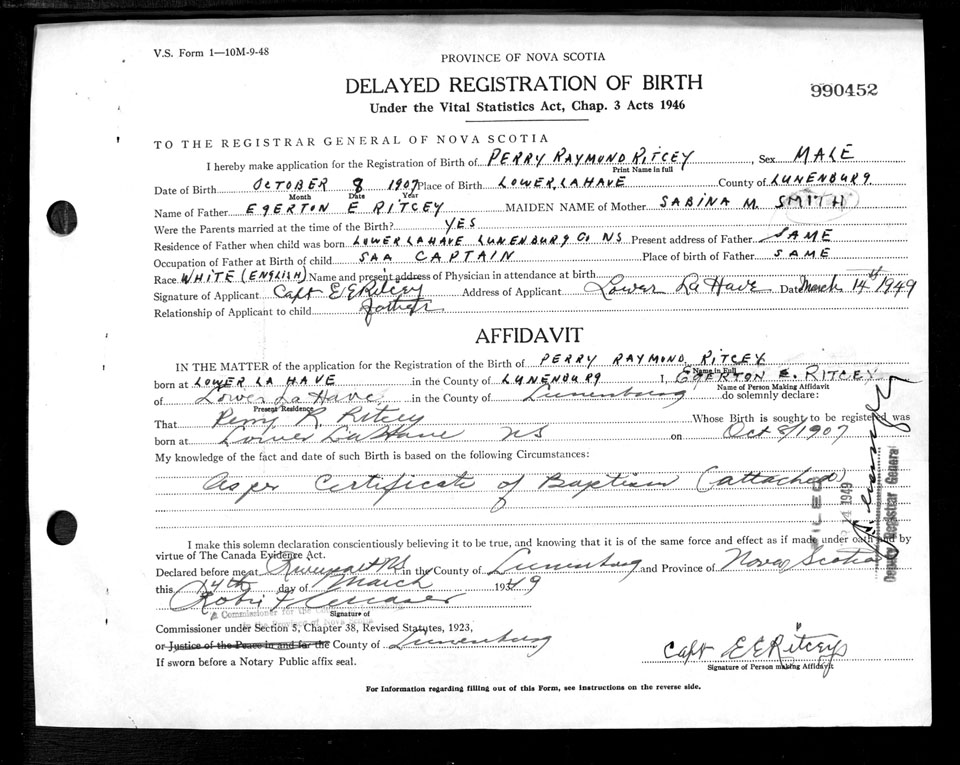 V.S. Form 1—10M-9-48
PROVINCE OF NOVA SCOTIA
DELAYED REGISTRATION OF BIRTH
990452
Under the Vital Statistics Act, Chap. 3 Acts 1946
TO THE REGISTRAR GENERAL OF NOVA SCOTIA
I hereby make application for the Registration of Birth of PERRY RAYMOND RITCEY, Sex MALE
Print Name in full
Date of Birth OCTOBER 8 1907 Place of Birth LOWER LAHAVE County of LUNENBURG
Month Date Year
Name of Father EGERTON E RITCEY MAIDEN NAME of Mother SABINA M. SMITH
Were the Parents married at the time of the Birth? YES
Residence of Father when child was born LOWER LAHAVE LUNENBURG Co NS Present address of Father SAME
Occupation of Father at Birth of child SAA CAPTAIN Place of birth of Father SAME
Race WHITE (ENGLISH) Name and present address of Physician in attendance at birth
Signature of Applicant Capt E E Ritcey Address of Applicant Lower La Have Date March 14th 1949
Relationship of Applicant to child father
AFFIDAVIT
IN THE MATTER of the application for the Registration of the Birth of PERRY RAYMOND RITCEY
Name in Full
born at LOWER LA HAVE in the County of LUNENBURG I, EGERTON E. RITCEY
Name of Person Making Affidavit
of Lower La Have in the County of Lunenburg do solemnly declare:
Present Residence
That Perry R. Ritcey Whose Birth is sought to be registered was
born at Lower La Have NS on Oct 8/1907
My knowledge of the fact and date of such Birth is based on the following Circumstances:
As per Certificate of Baptism (attached)
FILED
1949
Deputy Registrar General
I make this solemn declaration conscientiously believing it to be true, and knowing that it is of the same force and effect as if made under oath and by
virtue of The Canada Evidence Act.
Declared before me at Riverport NS in the County of Lunenburg and Province of Nova Scotia
this 14th day of March 1949
A Commissioner for the
in the Province of Nova Scotia
Signature of
Commissioner under Section 5, Chapter 38, Revised Statutes, 1923,
or Justice of the Peace in and for the County of Lunenburg
If sworn before a Notary Public affix seal.
Capt E E Ritcey
Signature of Person making Affidavit
For Information regarding filling out of this Form, see instructions on the reverse side.